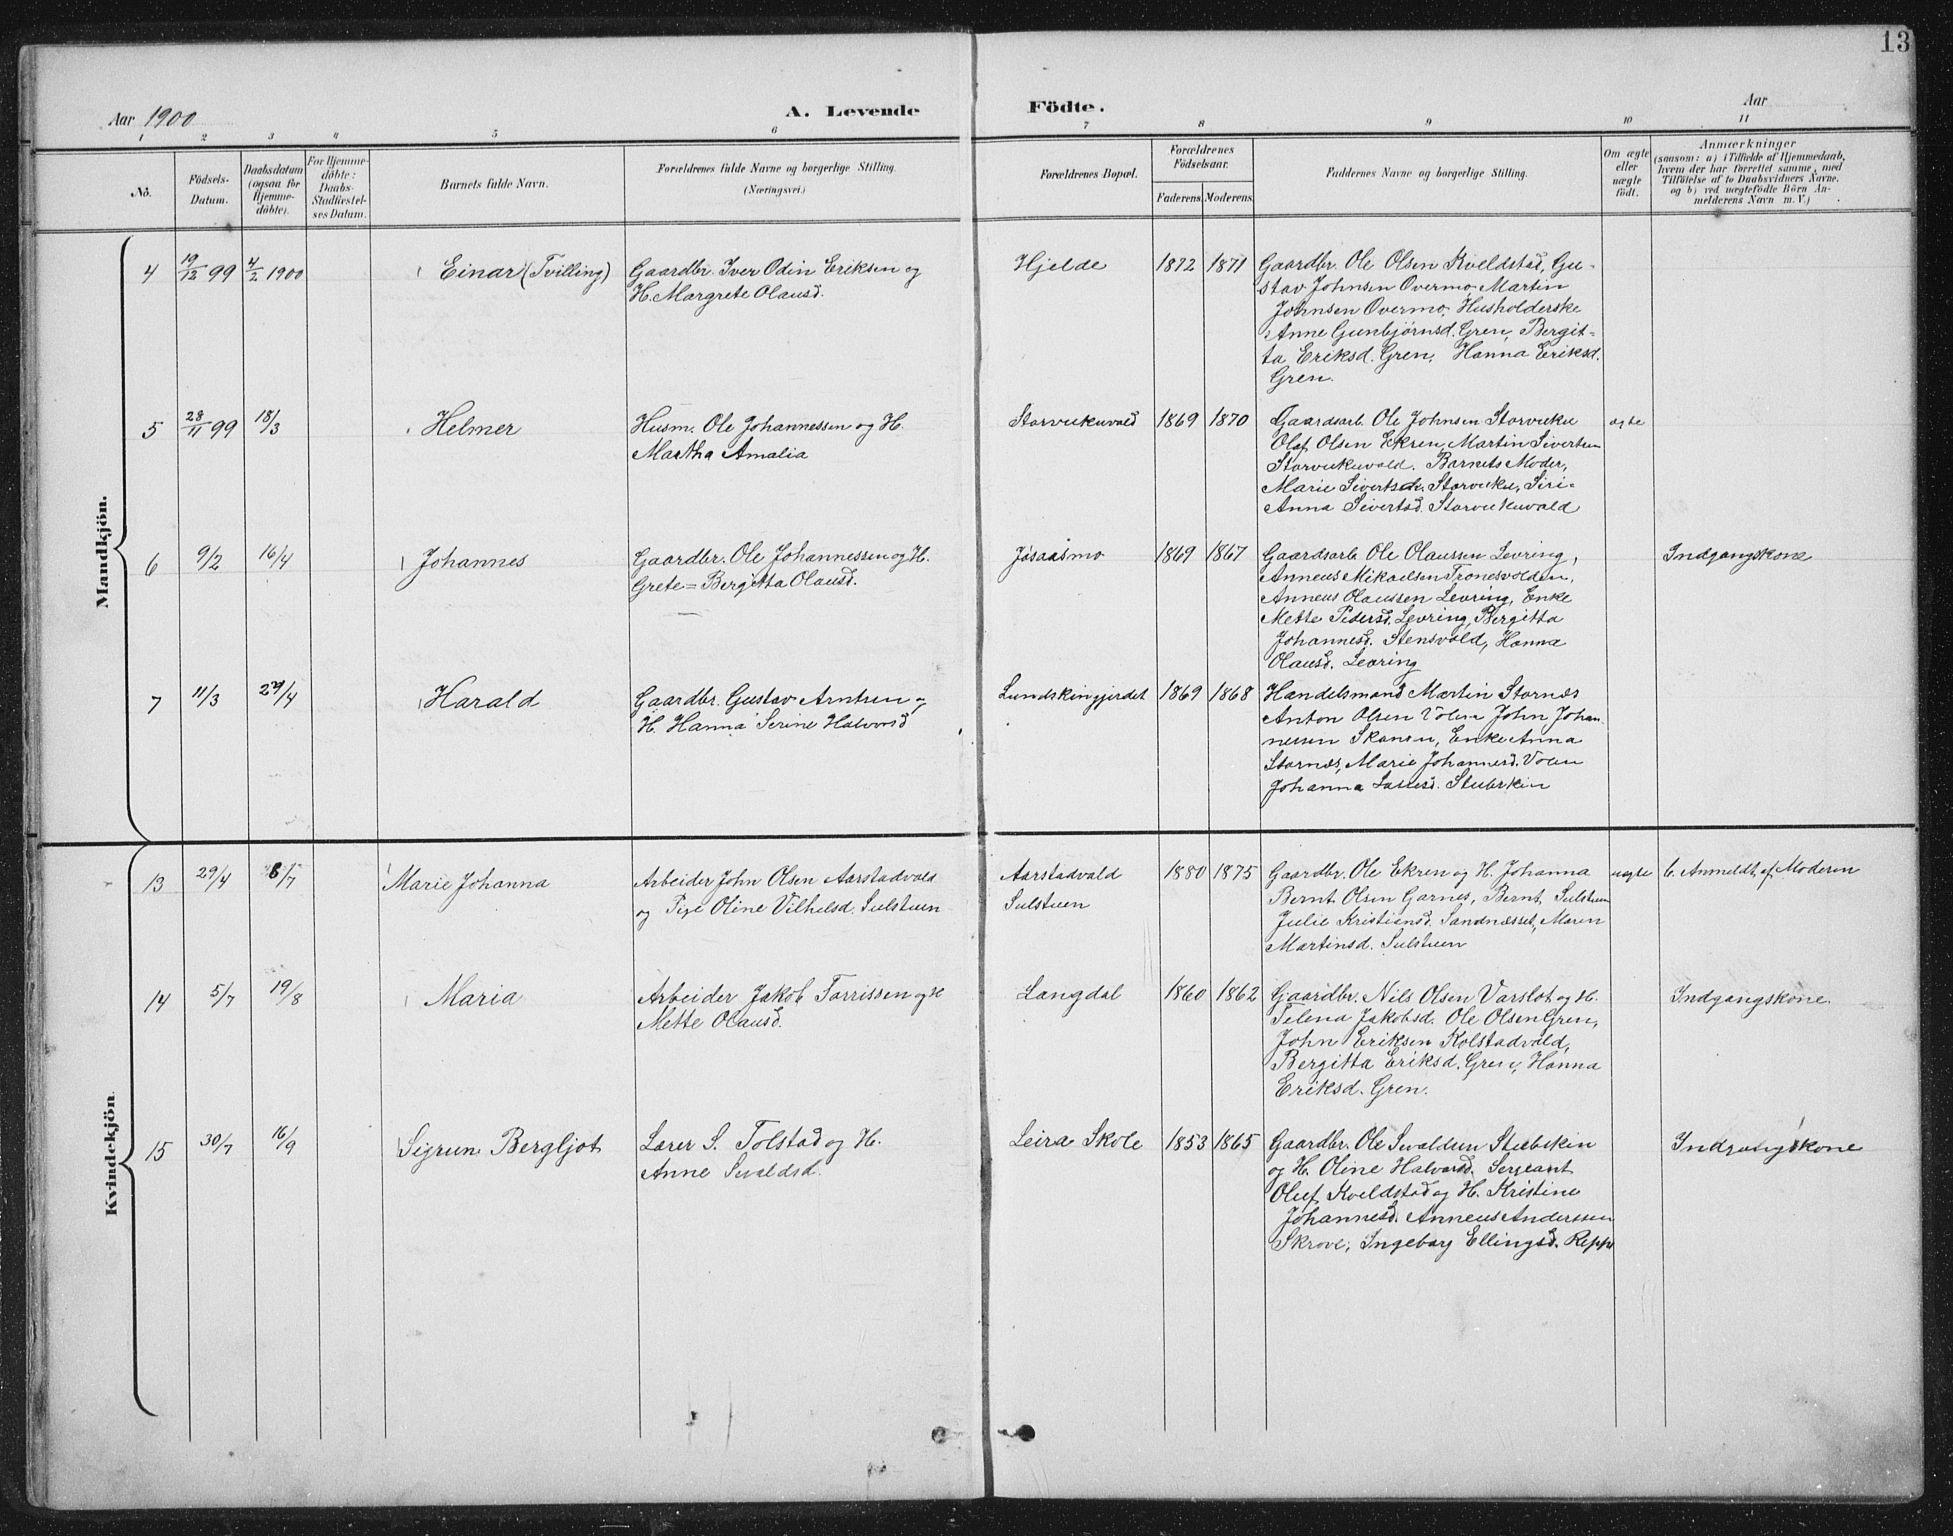 13
Aar 1900
A. Levende
Födte.
Aar
1 2 3 4 5 6 7 8 9 10 11
No.
Födsels-
Datum.
Daabsdatum
(ogsaa for
Hjemme-
döbte).
For Hjemme-
döbte:
Daabs-
Stadfæstel-
ses Datum.
Barnets fulde Navn.
Forældrenes fulde Navne og borgerlige Stilling.
(Næringsvei.)
Forældrenes Bopæl.
Forældrenes
Födselsaar.
Faderens. Moderens.
Faddernes Navne og borgerlige Stilling.
Om ægte
eller
uægte
födt.
Anmærkninger
(saasom: a) i Tilfælde af Hjemmedaab,
hvem der har forrettet samme, med
Tilföielse af to Daabsvidners Navne.
og b) ved uægtefödte Börn An-
melderens Navn m. V.)
Mandkjön.
4 19/12 99 4/2 1900 Einar (Tvilling)
Gaardbr. Iver Odin Eriksen og
H. Margrete Olausd.
Hjelde 1872 1871
Gaardbr. Ole Olsen Kveldstad, Gu-
stav Johnsen Overmo, Martin
Johnsen Overmo, Husholderske
Anne Gunbjørnsd. Gren, Bergit-
ta Eriksd. Gren, Hanna Eriksd.
Gren.
5 28/11 99 18/3 Helmer
Husm. Ole Johannessen og H.
Martha Amalia
Storvukuvald 1869 1870
Gaardsarb. Ole Johnsen Storvuku
Olaf Olsen Ekren, Martin Sivertsen
Storvukuvald. Barnets Moder,
Marie Sivertsd. Storvuku, Siri-
Anna Sivertsd. Storvukuvald
ægte
6 9/2 16/4 Johannes
Gaardbr. Ole Johannessen og H.
Grete=Bergitta Olausd.
Jøsaasmo 1869 1867
Gaardsarb. Ole Olaussen Levring,
Anneus Mikaelsen Tronesvolden,
Anneus Olaussen Levring, Enke
Mette Pedersd. Levring, Bergitta
Johannesd. Stensvald, Hanna
Olausd. Levring
Indgangskone
7 11/3 29/4 Harald
Gaardbr. Gustav Arntsen og
H. Hanna Serine Halvorsd
Lundskingjerdet 1869 1868
Handelsmand Martin Stornæs
Anton Olsen Volen John Johan
nessen Skansen, Enke Anna
Stornæs, Marie Johannesd. Volen
Johanna Lassesd. Stubskin
Kvindekjön.
13 29/4 8/7 Marie Johanna
Arbeider John Olsen Aarstadvald
og Pige Oline Vilhelsd. Sulstuen
Aarstadvald
Sulstuen
1880 1875
Gaardbr. Ole Ekren og H. Johanna
Bernt Olsen Garnes, Bernt Sulstuen
Julie Kristiansd. Sandnæsset, Maren
Martinsd. Sulstuen
uægte
b. Anmeldt af Moderen
14 5/7 19/8 Maria
Arbeider Jakob Torrissen og H
Mette Olausd.
Langdal 1860 1862
Gaardbr. Nils Olsen Varslot og H.
Telena Jakobsd. Ole Olsen Gren,
John Eriksen Kolstadvald,
Bergitta Eriksd. Gren, Hanna
Eriksd. Gren.
Indgangskone.
15 30/7 16/9 Sigrun Bergljot
Lærer S. Tolstad og H.
Anne Sivaldsd.
Leira Skole 1853 1865
Gaardbr. Ole Sivaldsen Stubskin
og H. Oline Halvorsd. Sergeant
Oluf Kveldstad og H. Kristine
Johannesd. Anneus Anderssen
Skrove, Ingeborg Ellingsd. Reppe
Indgangskone